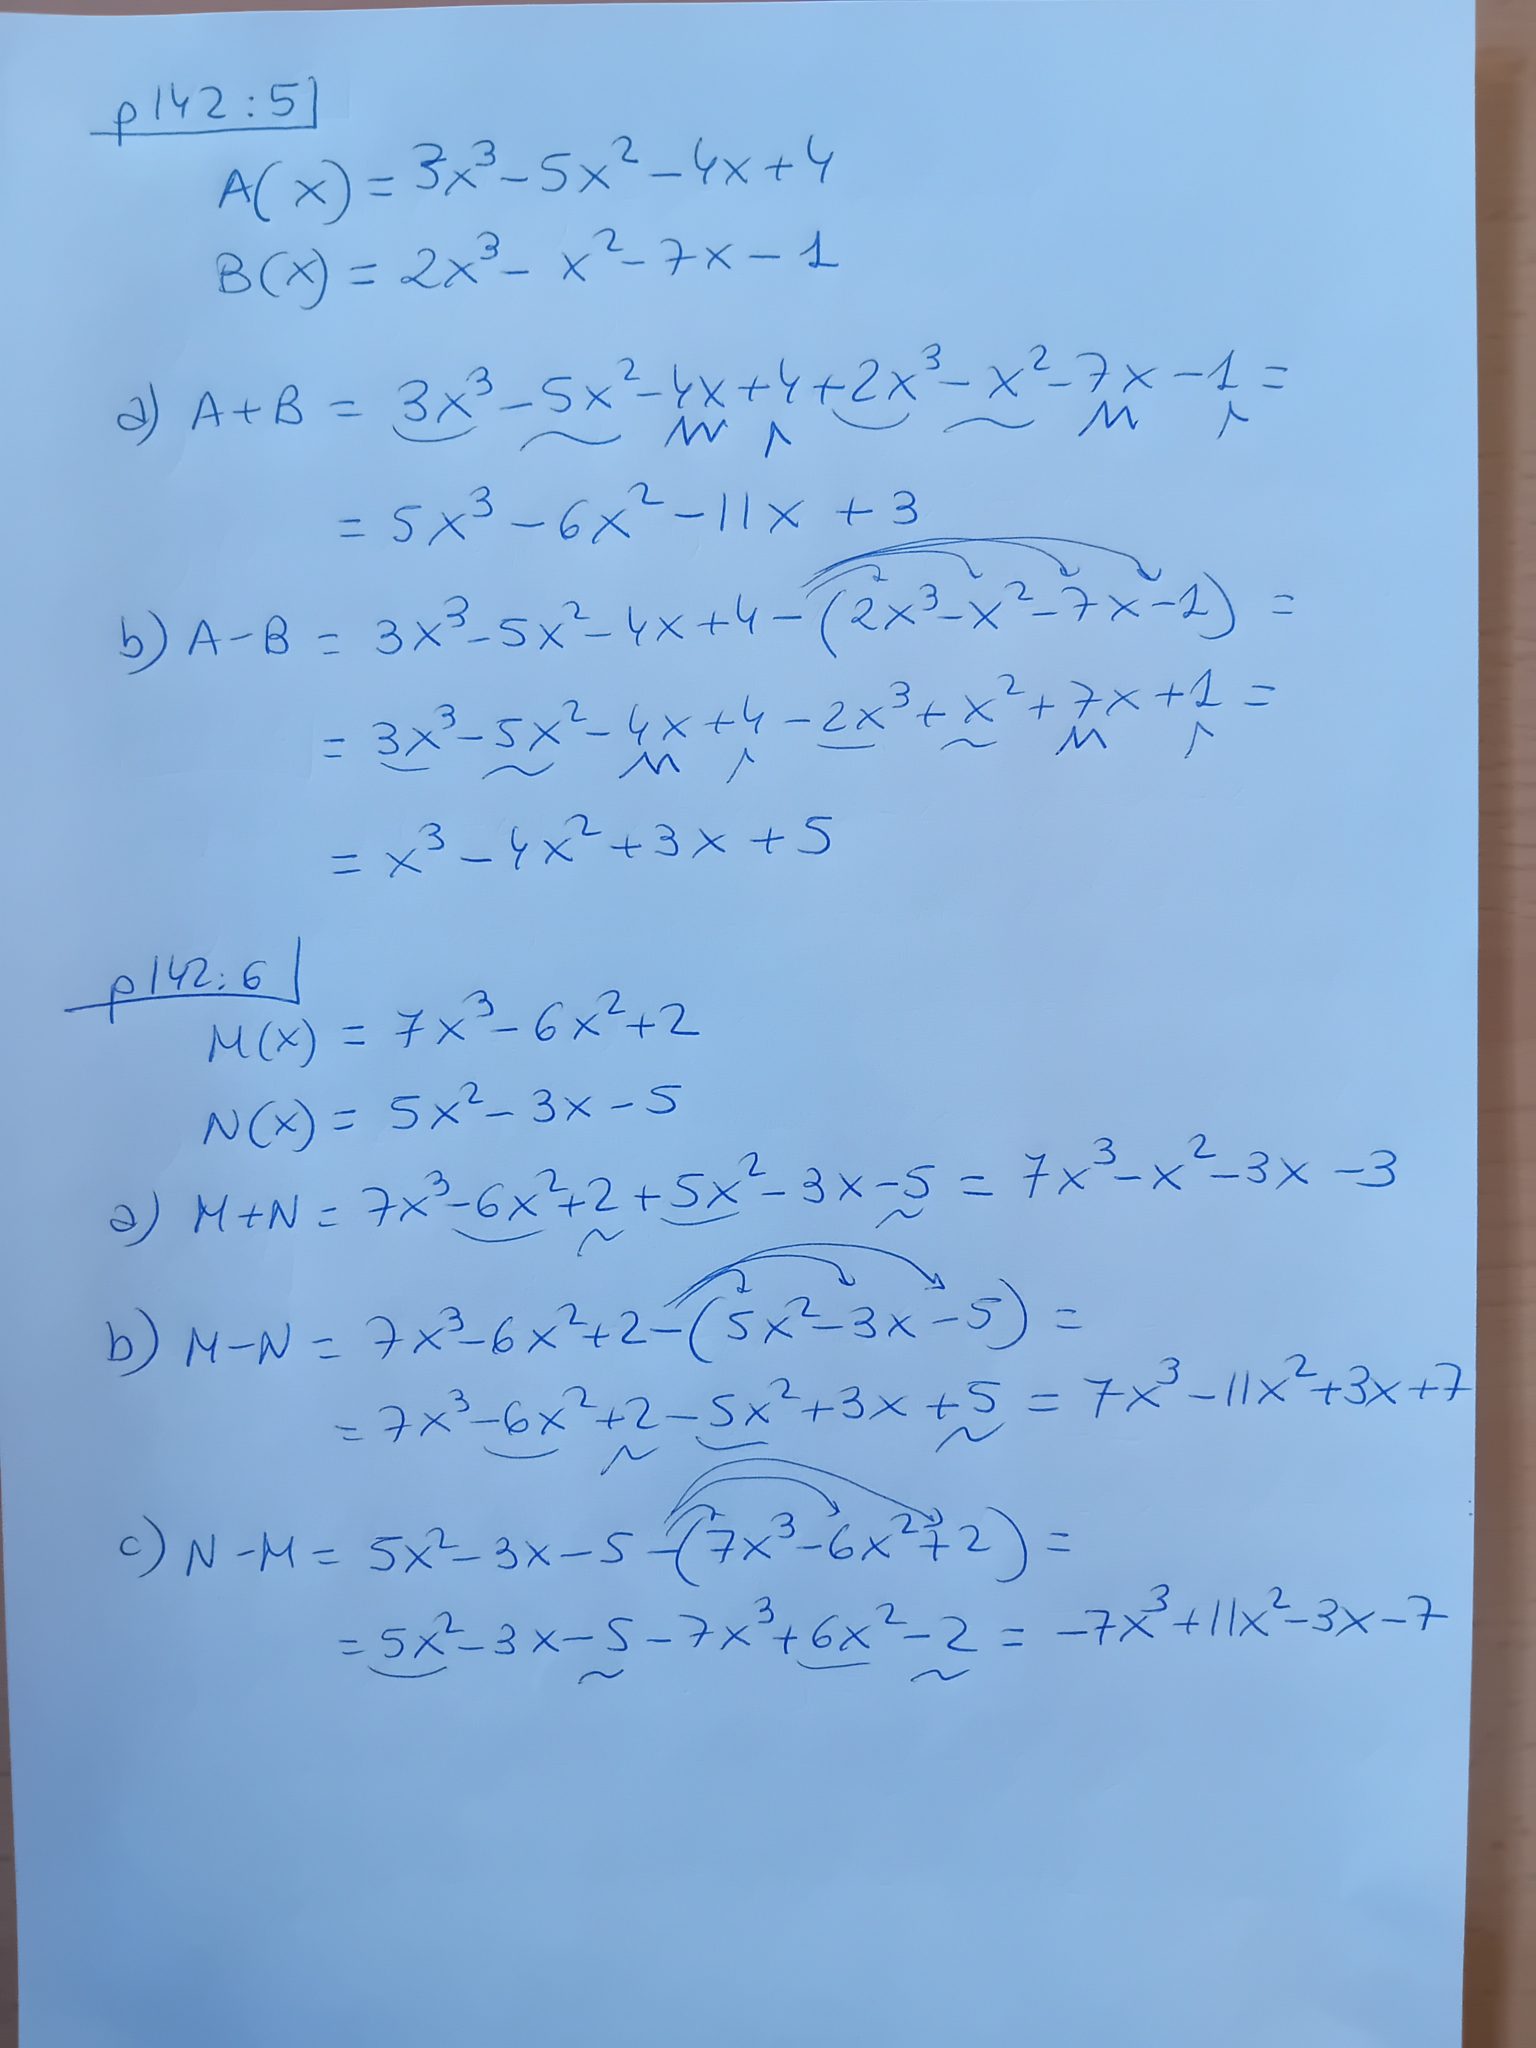 p142:5
A(x) = 3x³ - 5x² - 4x + 4
B(x) = 2x³ - x² - 7x - 1
a) A+B = 3x³ - 5x² - 4x + 4 + 2x³ - x² - 7x - 1 =
= 5x³ - 6x² - 11x + 3
b) A-B = 3x³ - 5x² - 4x + 4 - (2x³ - x² - 7x - 1) =
= 3x³ - 5x² - 4x + 4 - 2x³ + x² + 7x + 1 =
= x³ - 4x² + 3x + 5
p142:6
M(x) = 7x³ - 6x² + 2
N(x) = 5x² - 3x - 5
a) M+N = 7x³ - 6x² + 2 + 5x² - 3x - 5 = 7x³ - x² - 3x - 3
b) M-N = 7x³ - 6x² + 2 - (5x² - 3x - 5) =
= 7x³ - 6x² + 2 - 5x² + 3x + 5 = 7x³ - 11x² + 3x + 7
c) N-M = 5x² - 3x - 5 - (7x³ - 6x² + 2) =
= 5x² - 3x - 5 - 7x³ + 6x² - 2 = -7x³ + 11x² - 3x - 7